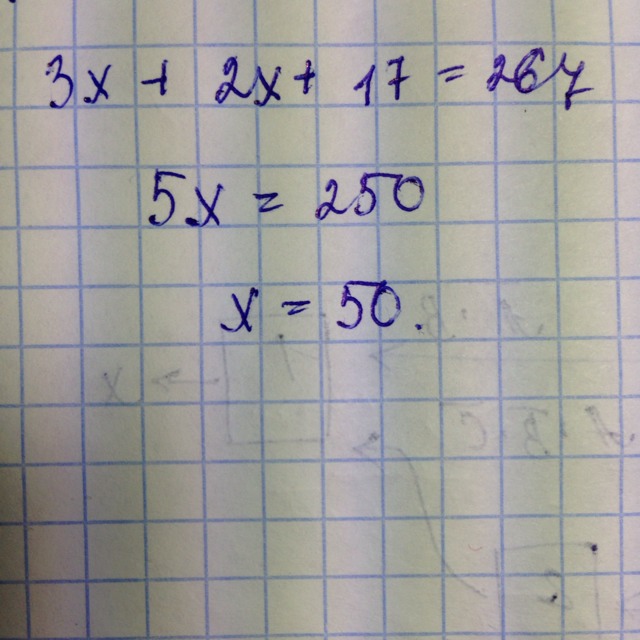 3x + 2x + 17 = 267
5x = 250
x = 50.